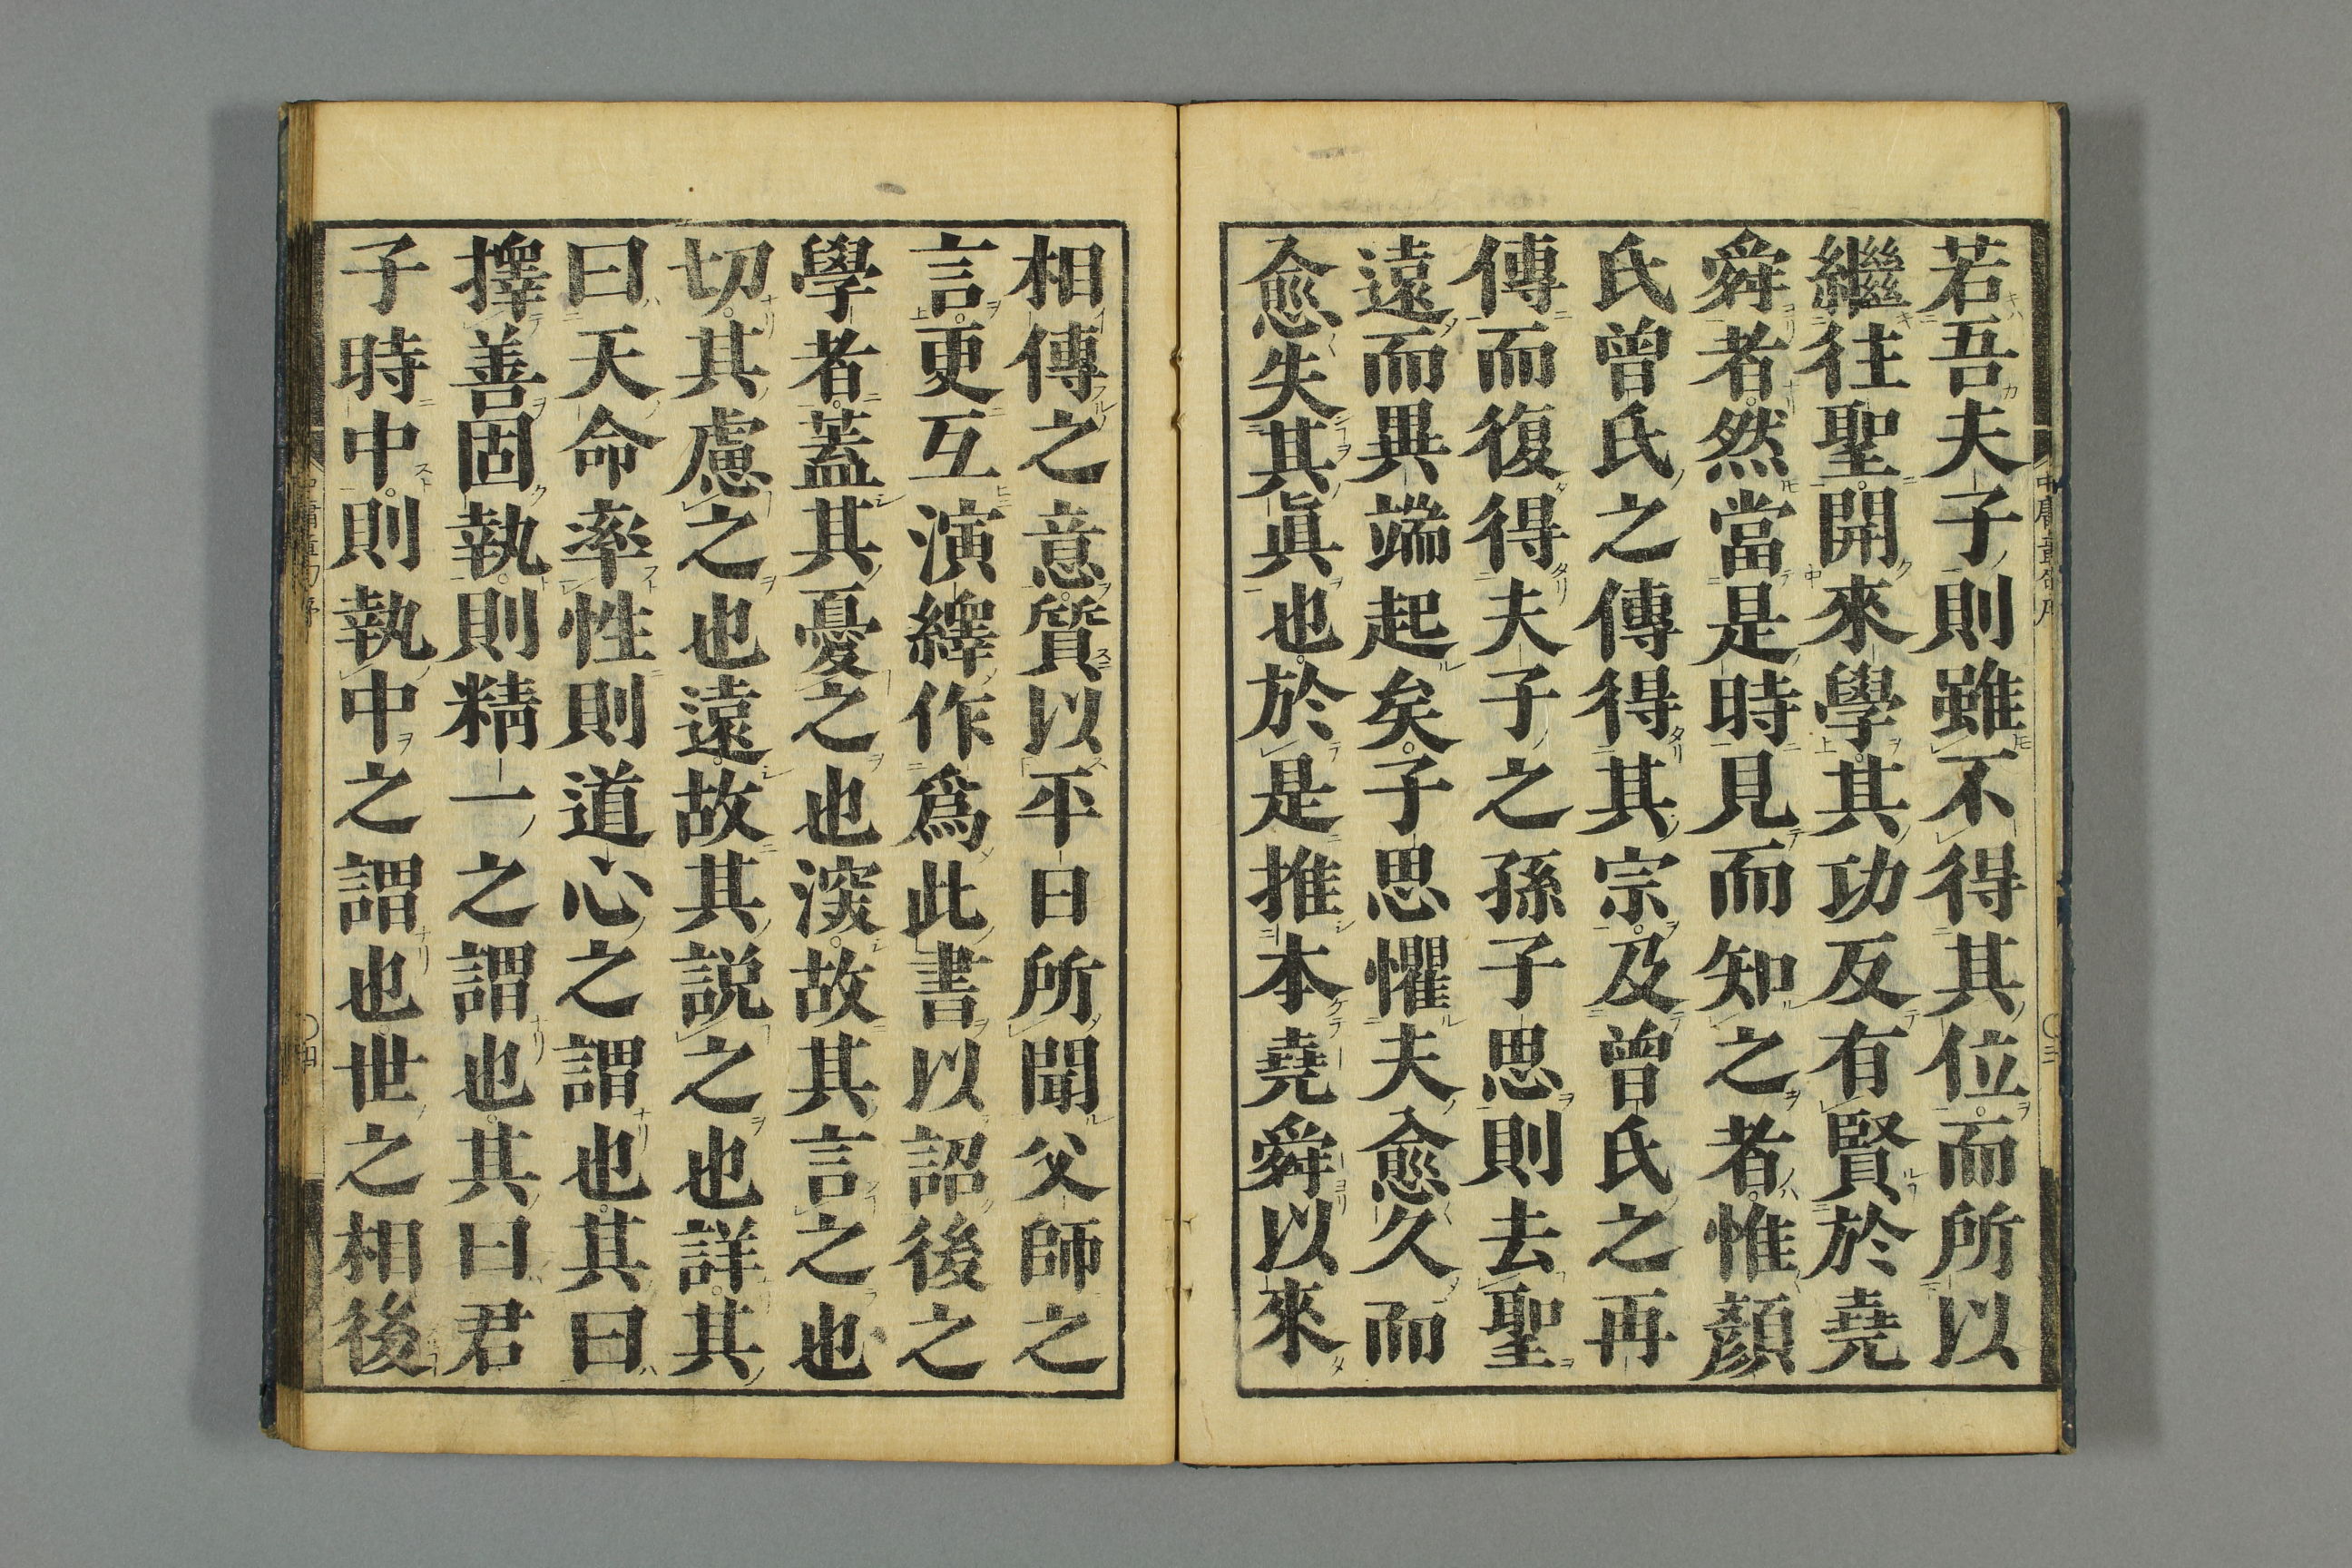 若吾夫子則雖不得其位而所以
繼往聖開來學其功反有賢於堯
舜者然當是時見而知之者惟顏
氏曾氏之傳得其宗及曾氏之再
傳而復得夫子之孫子思則去聖
遠而異端起矣子思懼夫愈久而
愈失其眞也於是推本堯舜以來
相傳之意質以平日所聞父師之
言更互演繹作爲此書以詔後之
學者蓋其憂之也深故其言之也
切其慮之也遠故其説之也詳其
曰天命率性則道心之謂也其曰
擇善固執則精一之謂也其曰君
子時中則執中之謂也世之相後